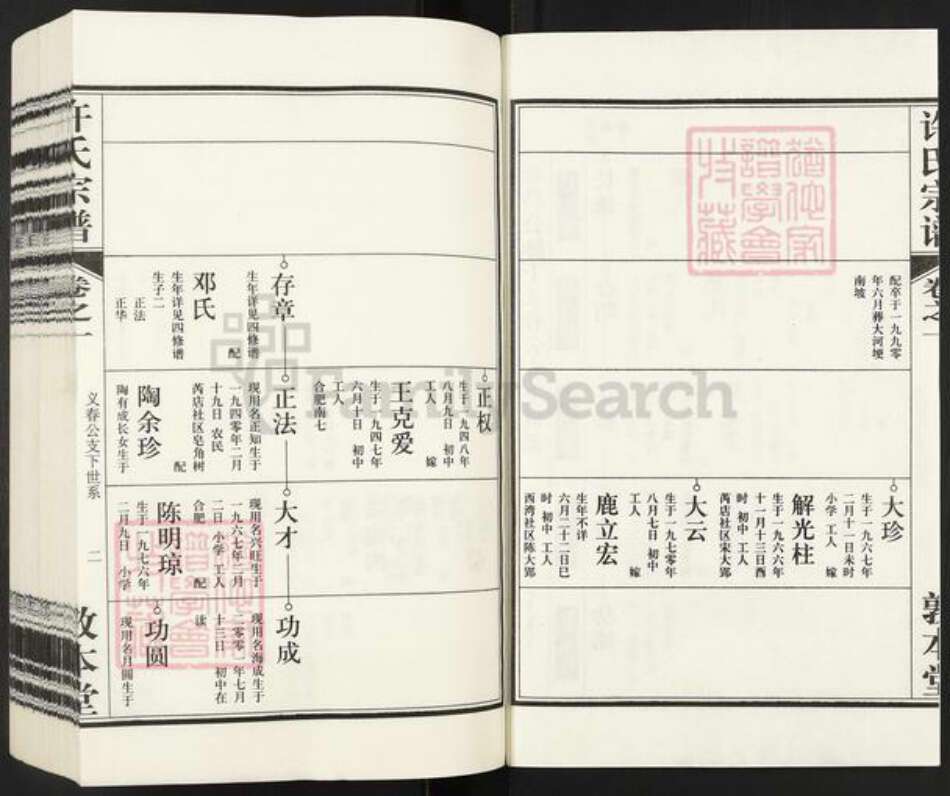 许氏宗谱
卷之一
敦本堂
配卒于一九九零
年六月葬大河埂
南坡
大珍
生于一九六七年
二月十一日未时
小学 工人 嫁
解光柱
生于一九六六年
十一月十三日酉
时 初中 工人
芮店社区宋大郢
大云
生于一九七零年
八月七日 初中
工人 嫁
鹿立宏
生年不详
六月二十二日巳
时 初中 工人
西湾社区陈大郢
正权
生于一九四八年
八月九日 初中
工人 嫁
王克爱
生于一九四七年
六月十日 初中
工人
合肥南七
存章
生年详见四修谱
配
邓氏
生年详见四修谱
生子二
正法
正华
正法
现用名正知生于
一九四零年二月
十九日 农民
芮店社区皂角树
配
陶余珍
陶有成长女生于
大才
现用名兴旺生于
一九六七年二月
二日 小学 工人
合肥 配
陈明琼
生于一九七六年
二月九日 小学
功成
现用名海成生于
二零零一年七月
十三日 初中在
读
功圆
现用名月圆生于
许氏宗谱
卷之一
义春公支下世系
二
敦本堂
FamilySearch